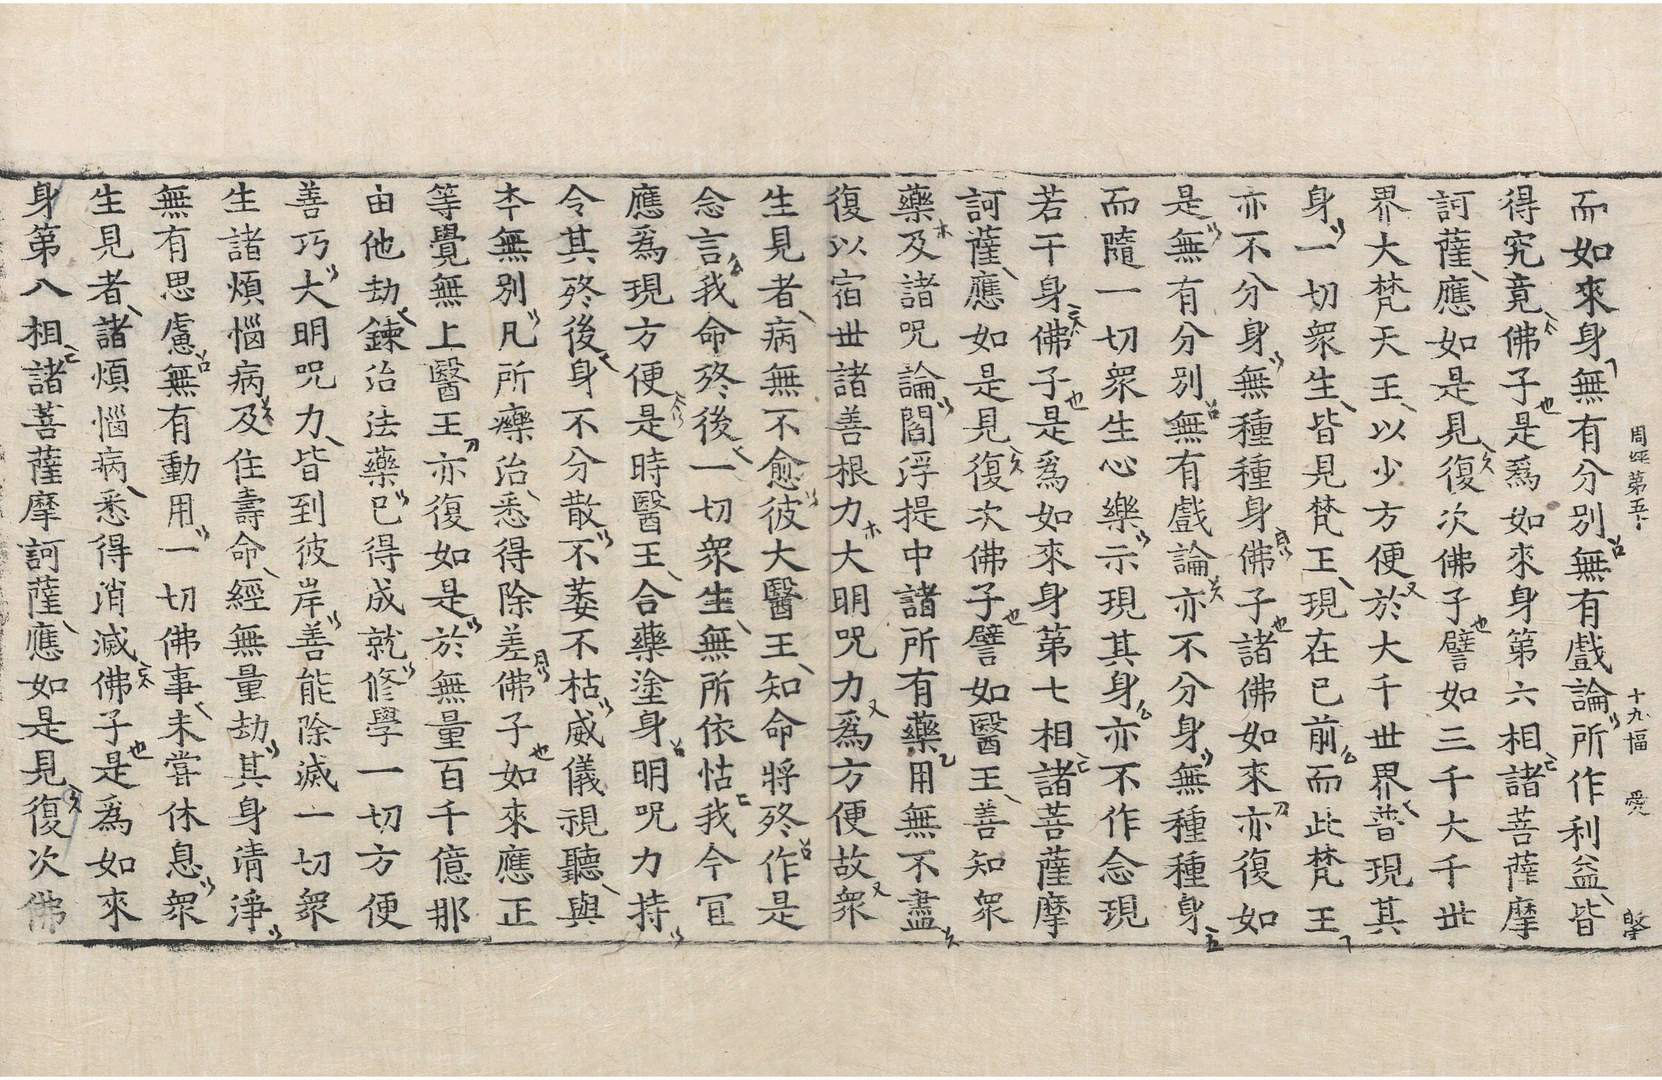 周經第五 十九幅 愛
而如來身無有分別無有戲論所作利益皆
得究竟佛子是爲如來身第六相諸菩薩摩
訶薩應如是見復次佛子譬如三千大千世
界大梵天王以少方便於大千世界普現其
身一切衆生皆見梵王現在已前而此梵王
亦不分身無種種身佛子諸佛如來亦復如
是無有分別無有戲論亦不分身無種種身
而隨一切衆生心樂示現其身亦不作念現
若干身佛子是爲如來身第七相諸菩薩摩
訶薩應如是見復次佛子譬如醫王善知衆
藥及諸呪論閻浮提中諸所有藥用無不盡
復以宿世諸善根力大明呪力爲方便故衆
生見者病無不愈彼大醫王知命將終作是
念言我命終後一切衆生無所依怙我今宜
應爲現方便是時醫王合藥塗身明呪力持
令其終後身不分散不萎不枯威儀視聽與
本無別凡所療治悉得除差佛子如來應正
等覺無上醫王亦復如是於無量百千億那
由他劫鍊治法藥已得成就修學一切方便
善巧大明呪力皆到彼岸善能除滅一切衆
生諸煩惱病及住壽命經無量劫其身清淨
無有思慮無有動用一切佛事未嘗休息衆
生見者諸煩惱病悉得消滅佛子是爲如來
身第八相諸菩薩摩訶薩應如是見復次佛